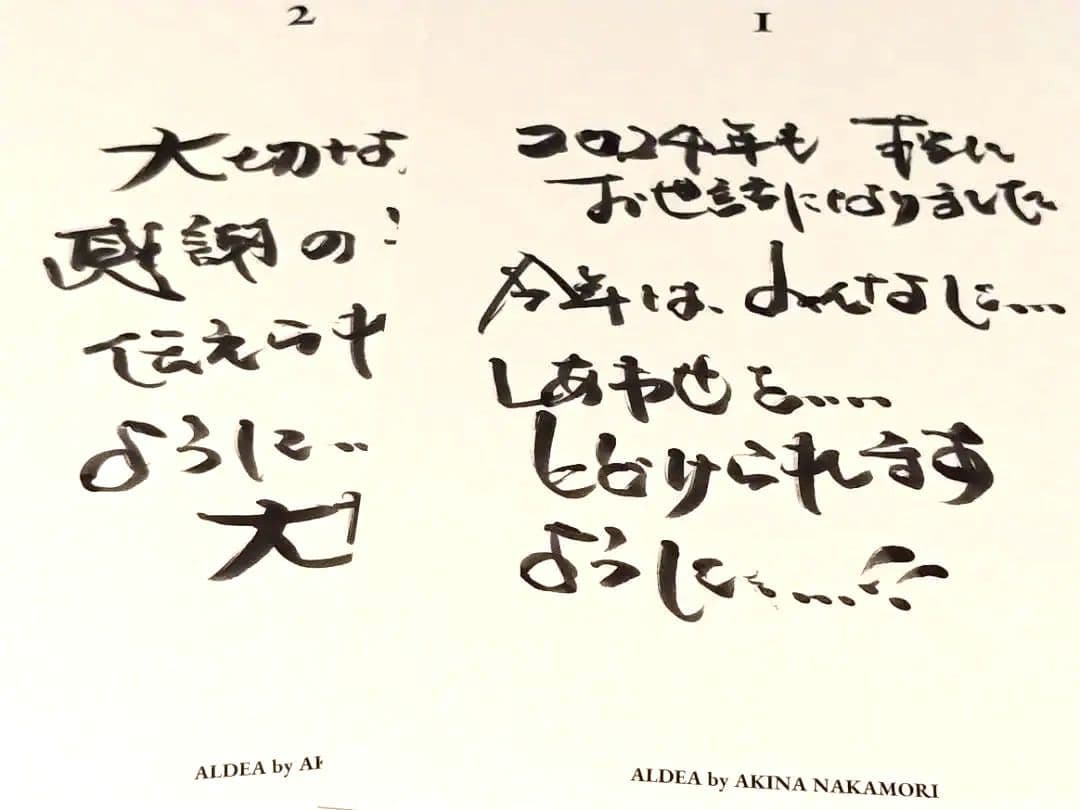 1
2024年も
お世話になりました
今年は、みんなに....
しあわせを....
とどけられます
ように....
ALDEA by AKINA NAKAMORI
2
大切な
感謝の
伝えら
ように...
大
ALDEA by